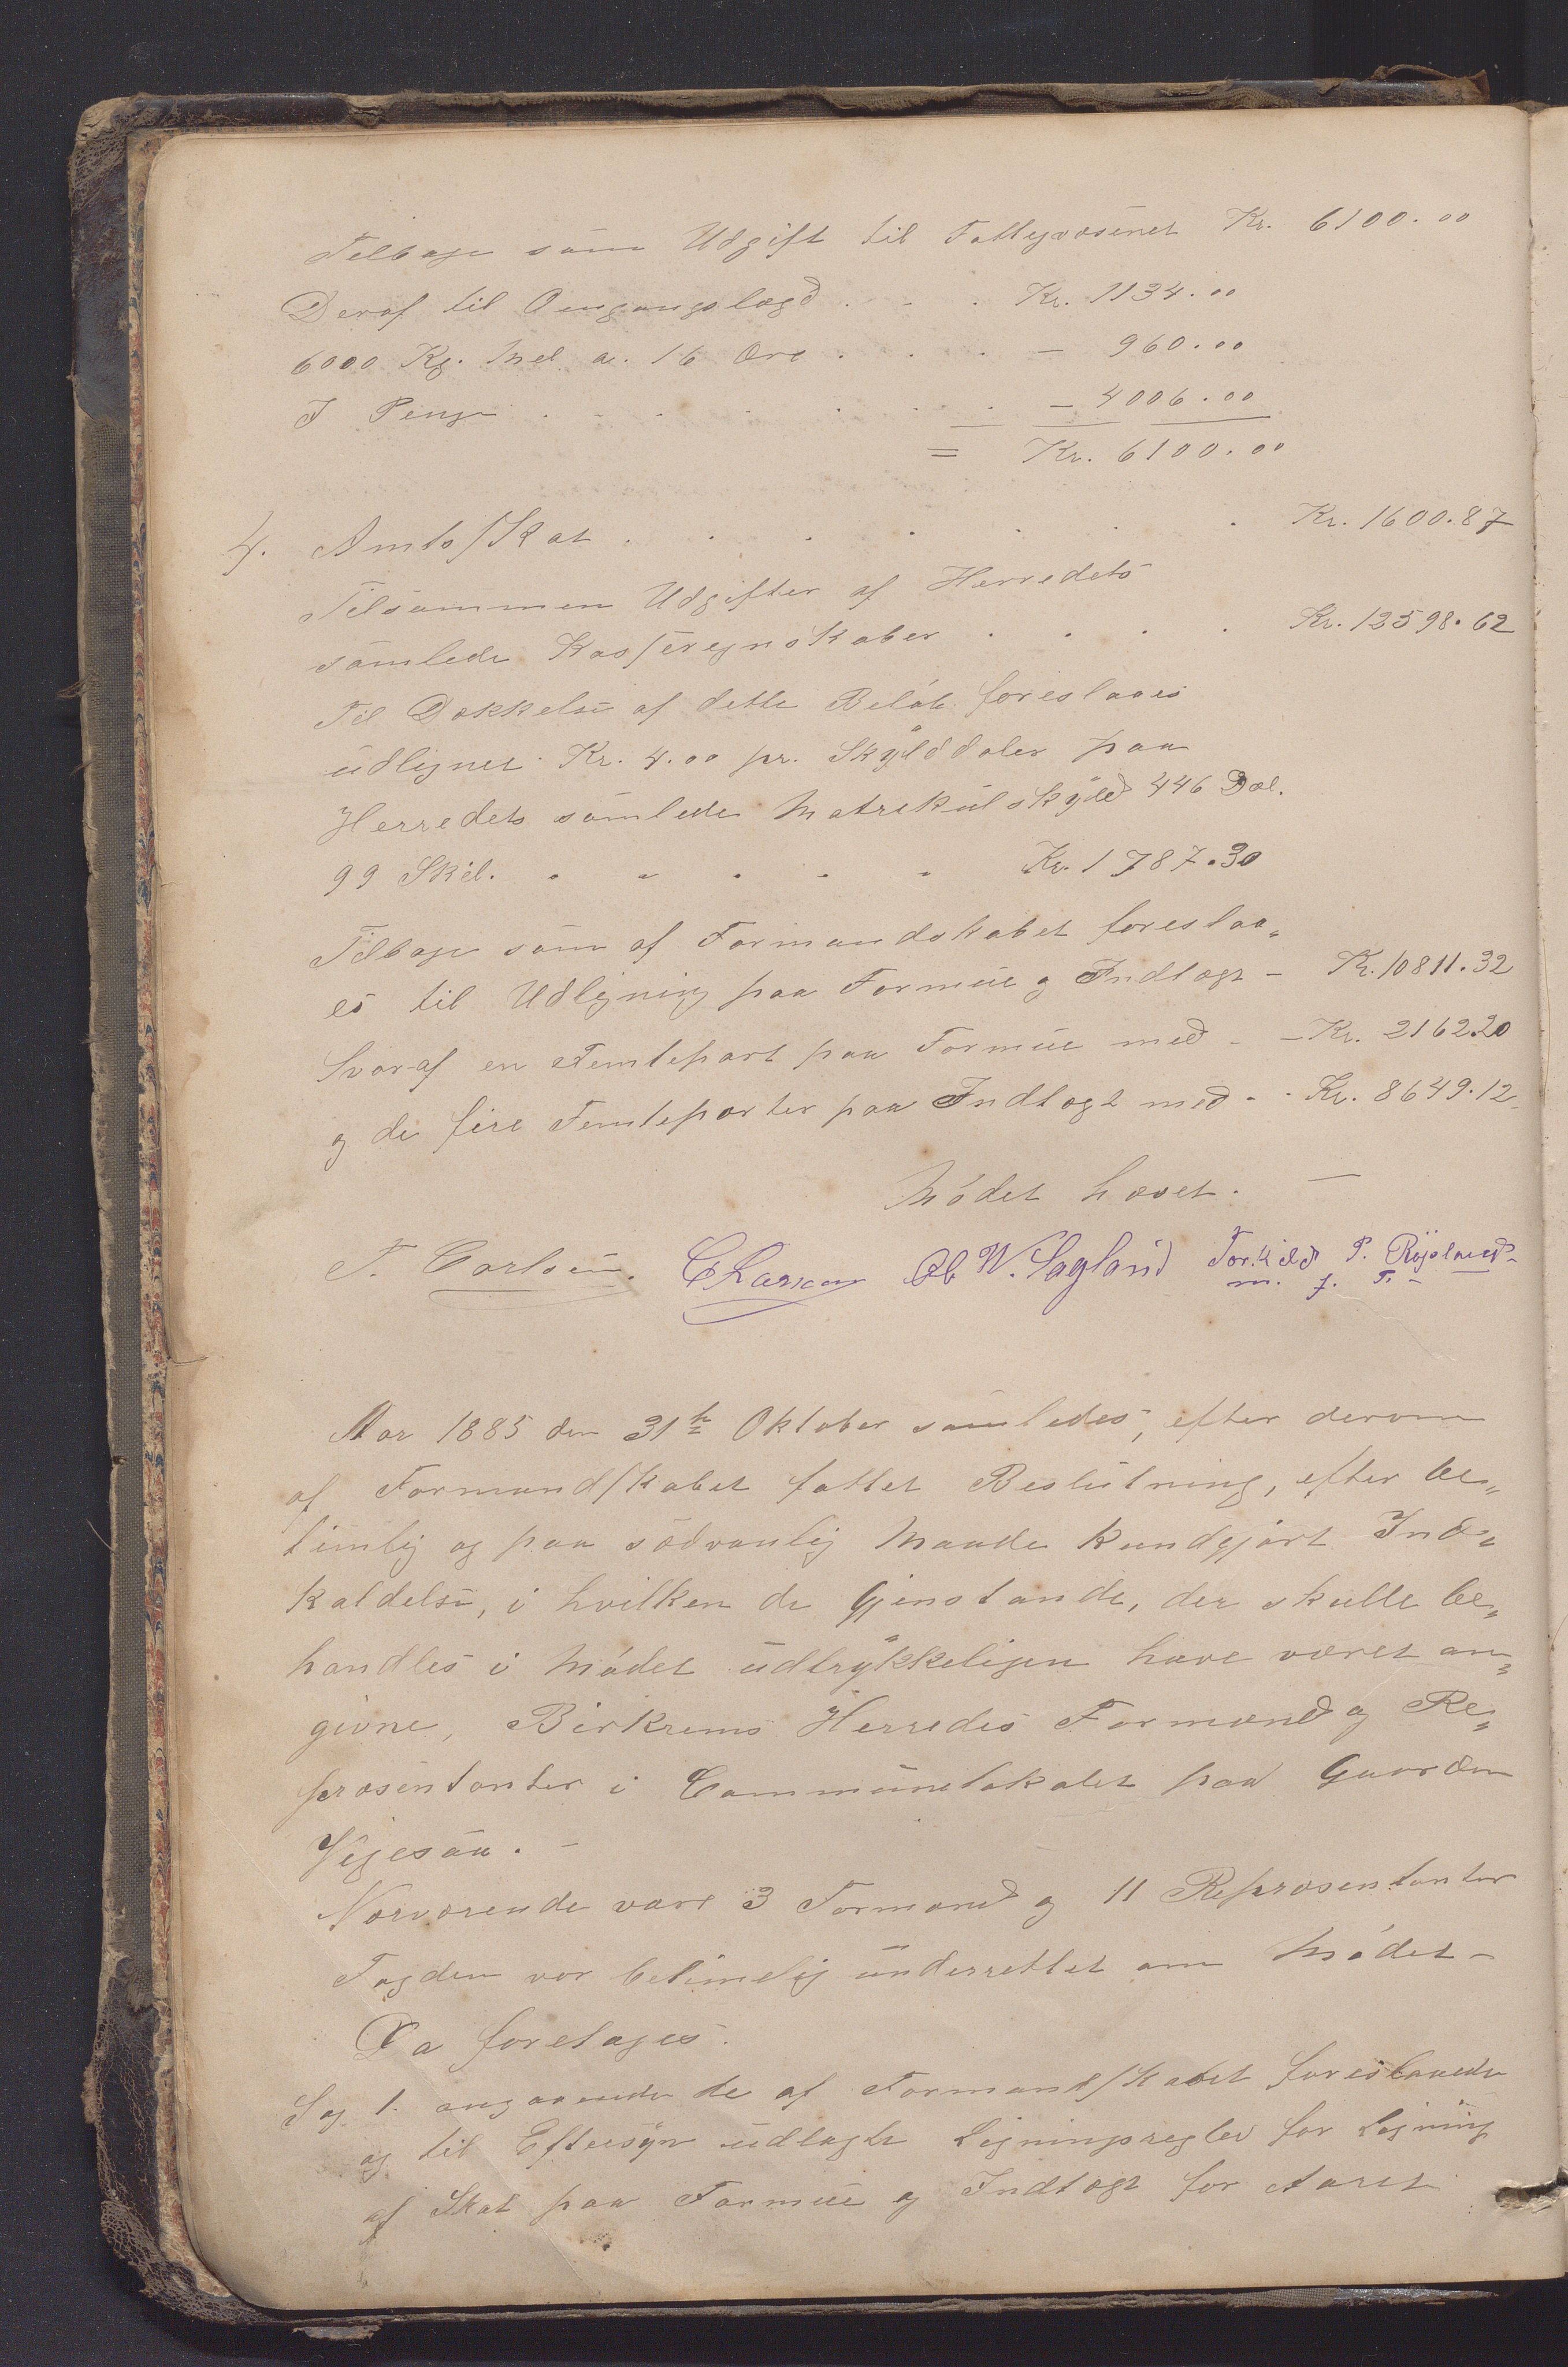 Tilbage som Udgift til Fattigvæsenet Kr. 6100.00
Deraf til Omgangslægd . . . Kr. 1134.00
6000 Kg. Mel a. 16 Øre . . . - 960.00
I Penge . . . . . . . - 4006.00
= Kr. 6100.00
4. Amtsskat . . . . . . . Kr. 1600.87
Tilsammen Udgifter af Herredets
samlede Kasseregnskaber . . . . Kr. 12598.62
Til Dækkelse af dette Beløb foreslaaes
udlignet Kr. 4.00 pr. Skylddaler paa
Herredets samlede Matrikulskyld 446 Dal.
99 Skil. . . . . . Kr. 1787.30
Tilbage som af Formandskabet foreslaa„
es til Udligning paa Formue og Indtægt - Kr. 10811.32
hvoraf en Femtepart paa Formue med - - Kr. 2162.20
og de fire Femteparter paa Indtægt med - - Kr. 8649.12
Mødet hævet. —
T. Carlsen. CLarsen Ob W. Sagland Torkild P. Røysland
m. f. P.
Aar 1885 den 31te Oktober samledes, efter derom
af Formandskabet fattet Beslutning, efter be„
timlig og paa sædvanlig Maade kundgjort Ind„
kaldelse, i hvilken de Gjenstande, der skulle be„
handles i Mødet udtrykkeligen have været an„
givne, Birkrems Herredes Formænd og Re„
præsentanter i Communelokalet paa Gaarden
Vigesaa. -
Nærværende vare 3 Formænd og 11 Repræsentanter
Fogden var betimelig underrettet om Mødet -
Da foretages.
Sag 1. angaaende de af Formandskabet foreslaaede
og til Eftersyn udlagte Ligningsregler for Ligning
af Skat paa Formue og Indtægt for Aaret